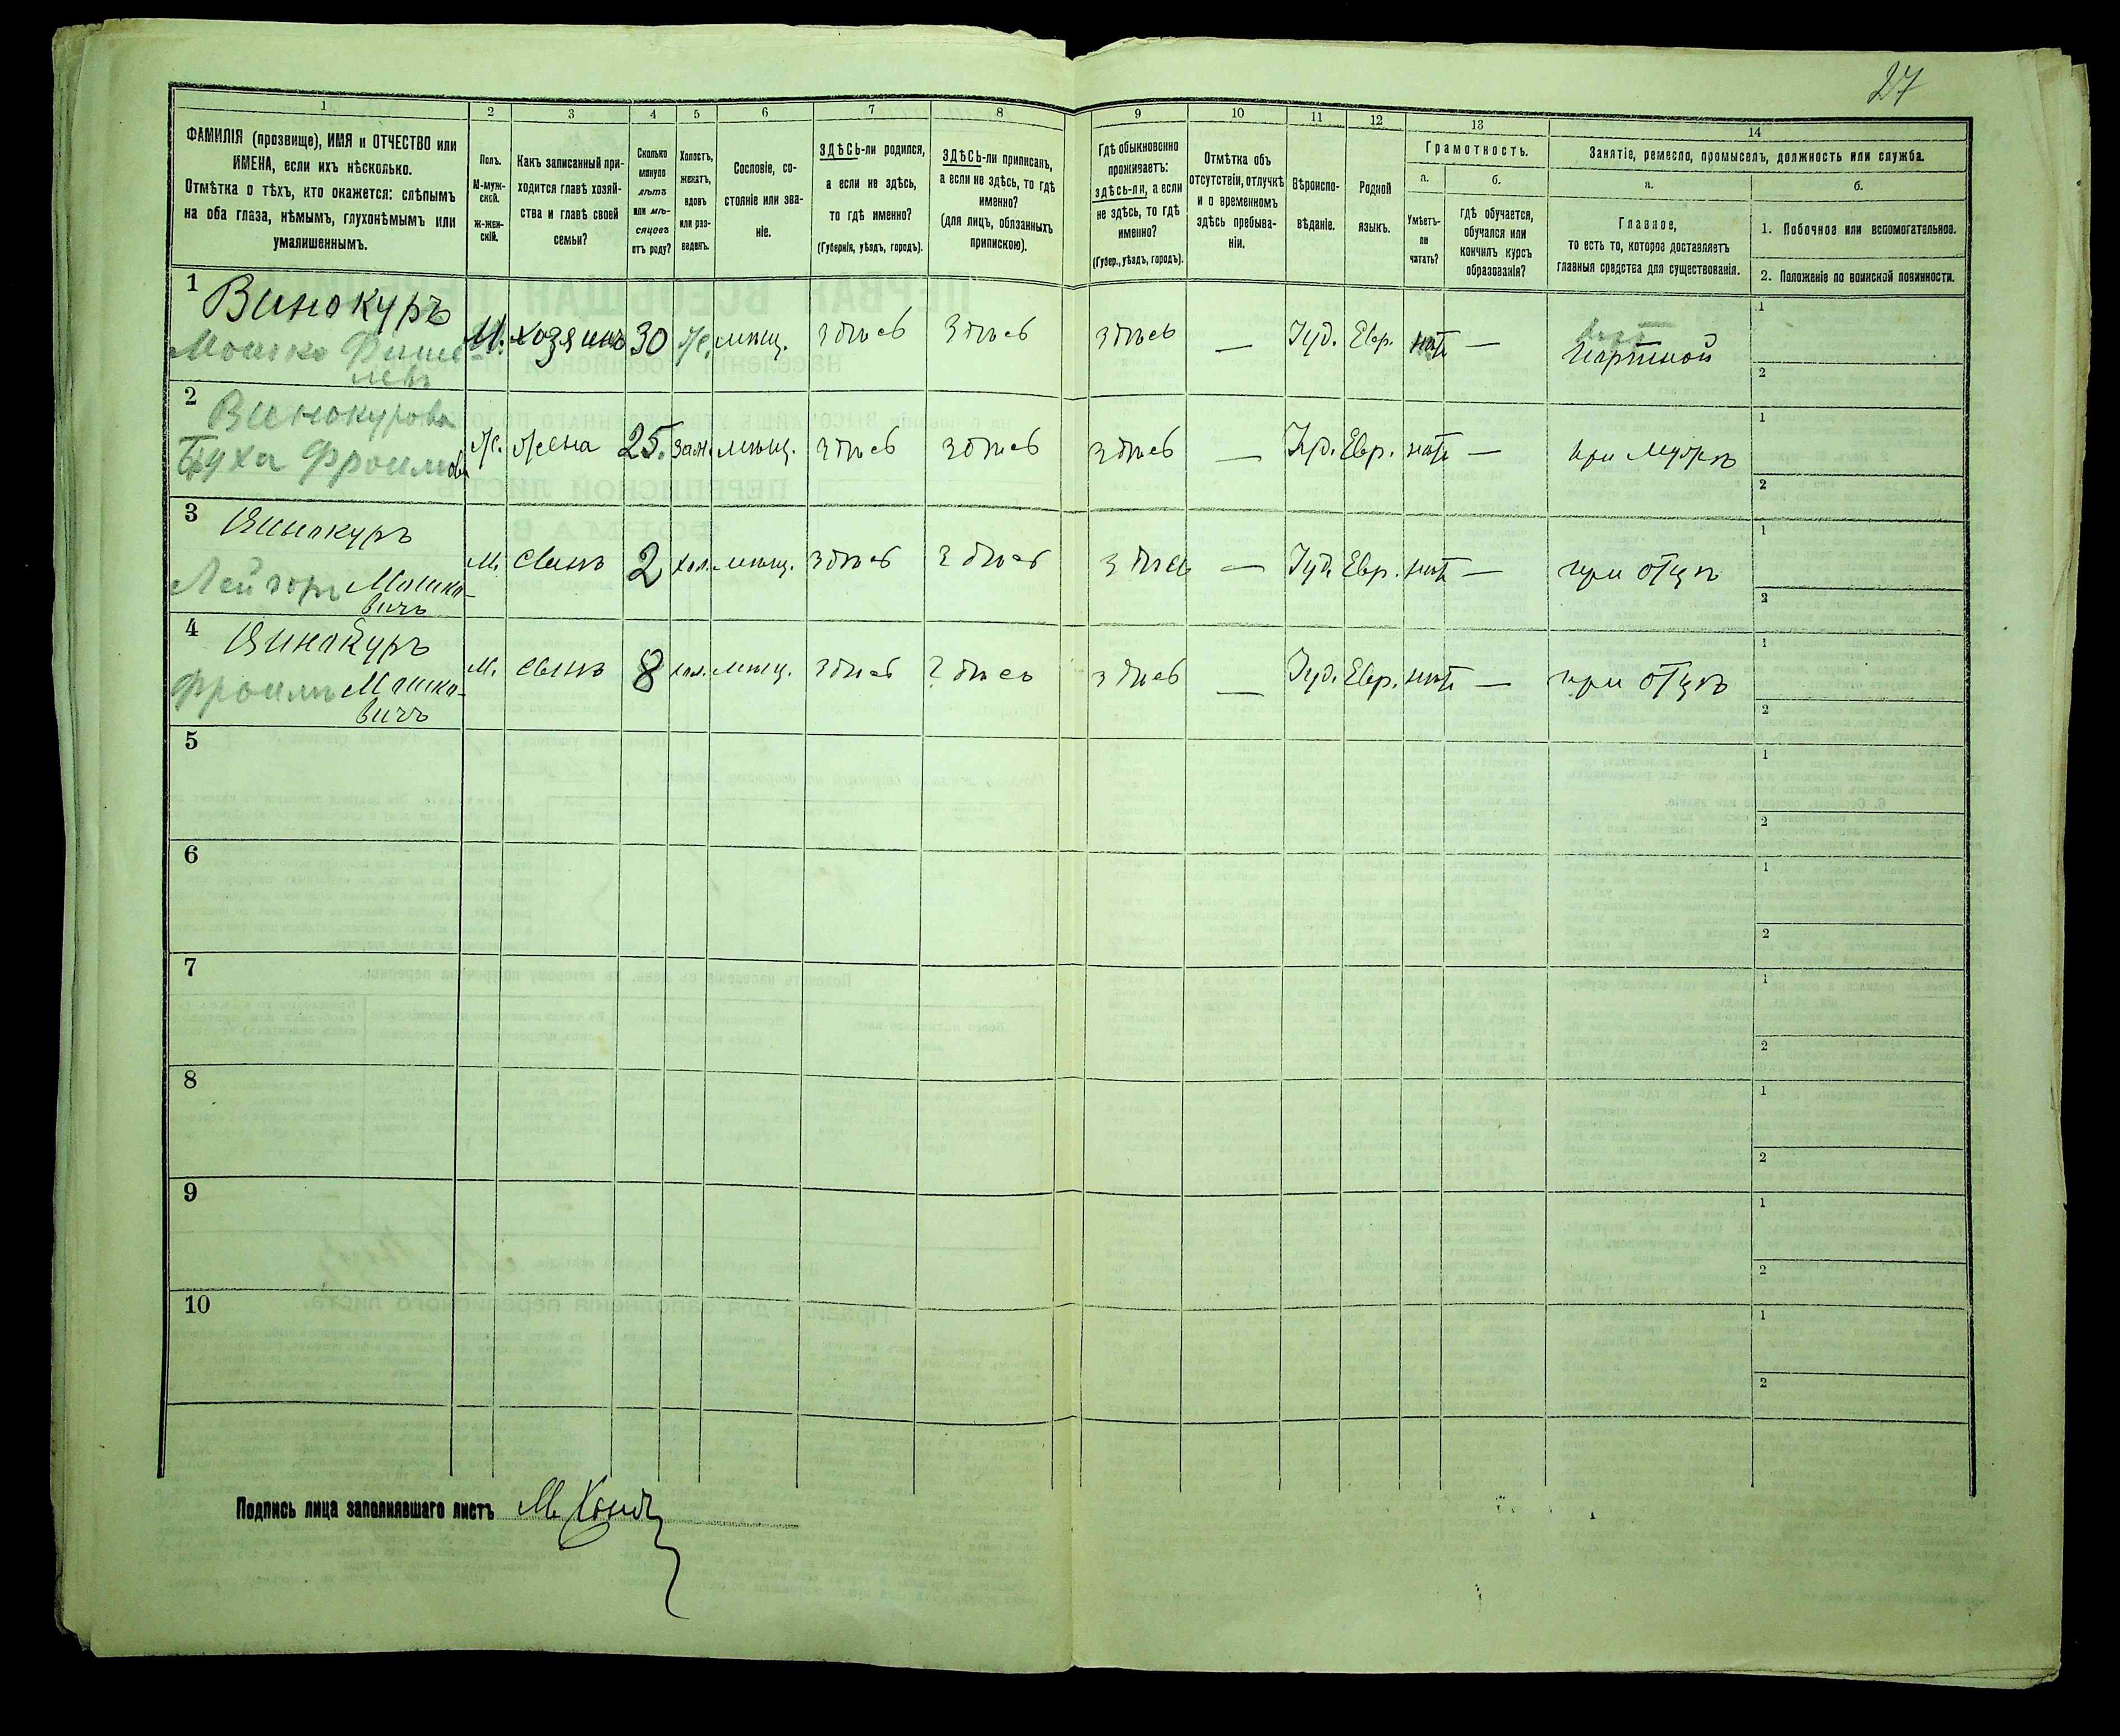 27
1 2 3 4 5 6 7 8 9 10 11 12 13 14
ФАМИЛІЯ (прозвище), ИМЯ и ОТЧЕСТВО или
ИМЕНА, если ихъ нѣсколько.
Отмѣтка о тѣхъ, кто окажется: слѣпымъ
на оба глаза, нѣмымъ, глухонѣмымъ или
умалишеннымъ.
Полъ.
М-муж-
ской.
Ж-жен-
скій.
Какъ записанный при-
ходится главѣ хозяй-
ства и главѣ своей
семьи?
Сколько
минуло
лѣтъ
или мѣ-
сяцовъ
отъ роду?
Холостъ,
женатъ,
вдовъ
или раз-
веденъ.
Сословіе, со-
стояніе или зва-
ніе.
ЗДѢСЬ-ли родился,
а если не здѣсь,
то гдѣ именно?
(Губернія, уѣздъ, городъ).
ЗДѢСЬ-ли приписанъ,
а если не здѣсь, то гдѣ
именно?
(для лицъ, обязанныхъ
припискою).
Гдѣ обыкновенно
проживаетъ:
здѣсь-ли, а если
не здѣсь, то гдѣ
именно?
(Губер., уѣздъ, городъ).
Отмѣтка объ
отсутствіи, отлучкѣ
и о временномъ
здѣсь пребыва-
ніи.
Вѣроиспо-
вѣданіе.
Родной
языкъ.
Грамотность.
а.
Умѣетъ-
ли
читать?
б.
гдѣ обучается,
обучался или
кончилъ курсъ
образованія?
Занятіе, ремесло, промыселъ, должность или служба.
а.
Главное,
то есть то, которое доставляетъ
главныя средства для существованія.
б.
1. Побочное или вспомогательное.
2. Положеніе по воинской повинности.
1 Винокуръ
Мошко Фише-
левъ
М. хозяинъ 30 Ж. мѣщ. здѣсь здѣсь здѣсь — Іуд. Евр. нѣтъ — Портной
1
2
2 Винокурова
Фроимова
Ж. Жена 25. Зам. мѣщ. здѣсь здѣсь здѣсь — Іуд. Евр. нѣтъ — при мужѣ
1
2
3 Винокуръ
Лейзоръ Мошко-
вичъ
М. сынъ 2 хол. мѣщ. здѣсь здѣсь здѣсь — Іуд. Евр. нѣтъ — при отцѣ
1
2
4 Винокуръ
Фроимъ Мошко-
вичъ
М. сынъ 8 хол. мѣщ. здѣсь здѣсь здѣсь — Іуд. Евр. нѣтъ — при отцѣ
1
2
5
1
2
6
1
2
7
1
2
8
1
2
9
1
2
10
1
2
Подпись лица заполнявшаго листъ